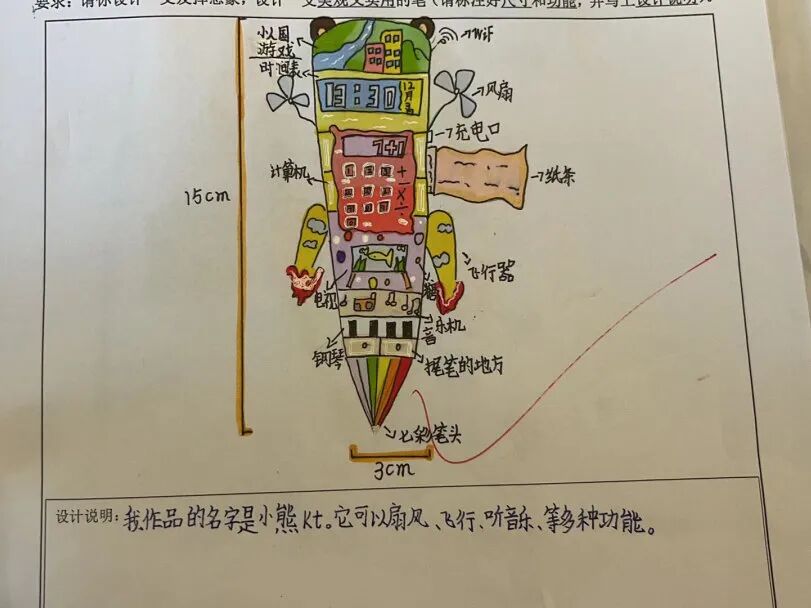 要求：请你设计一支发挥想象，设计一支美观又实用的笔（请标注好尺寸和功能，并写上设计说明）。
小人国
游戏
时间表
WiFi
13:30
12月
风扇
充电口
7+1
计算机
纸条
15cm
飞行器
电视
音乐机
钢琴
握笔的地方
七彩笔头
3cm
设计说明：我作品的名字是小熊Kt。它可以扇风、飞行、听音乐、等多种功能。